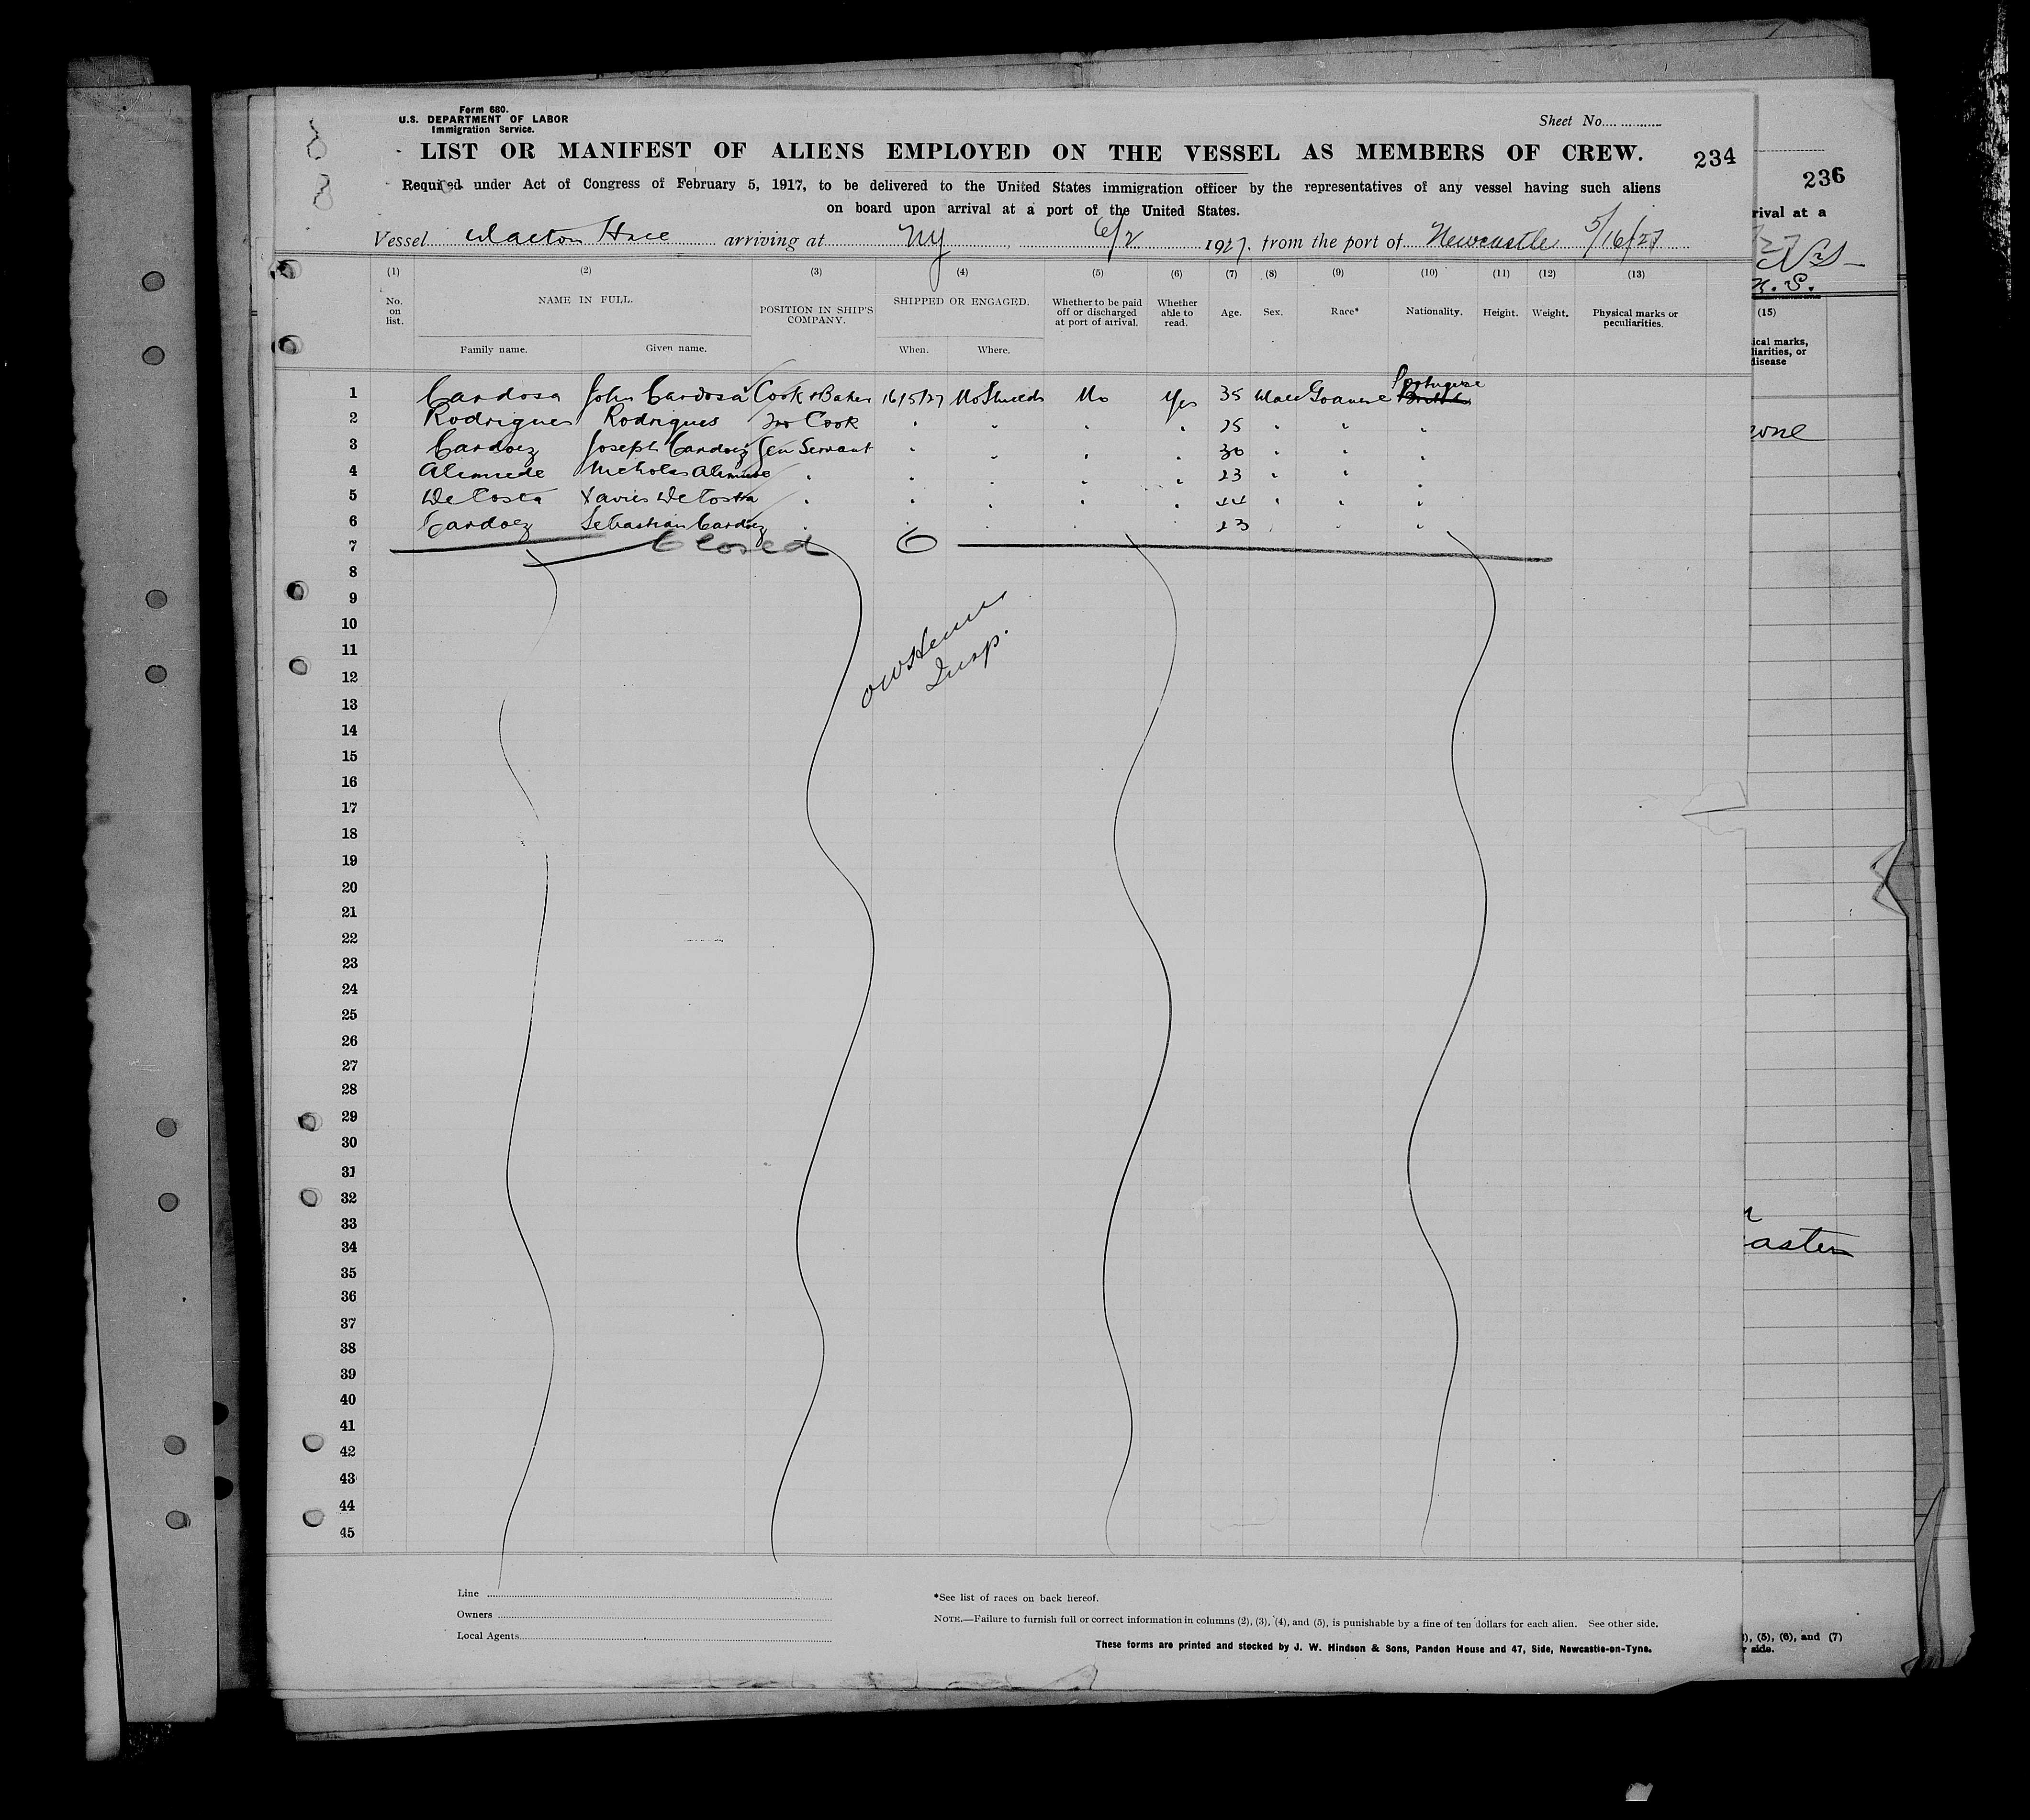 Form 680.
U.S. DEPARTMENT OF LABOR
Immigration Service.
Sheet No.
LIST OR MANIFEST OF ALIENS EMPLOYED ON THE VESSEL AS MEMBERS OF CREW.
234
Required under Act of Congress of February 5, 1917, to be delivered to the United States immigration officer by the representatives of any vessel having such aliens
on board upon arrival at a port of the United States.
Vessel arriving at NY, 6/2 1927, from the port of Newcastle 5/16/27
(1) (2) (3) (4) (5) (6) (7) (8) (9) (10) (11) (12) (13)
No. on list. NAME IN FULL. POSITION IN SHIP'S COMPANY. SHIPPED OR ENGAGED. Whether to be paid off or discharged at port of arrival. Whether able to read. Age. Sex. Race* Nationality. Height. Weight. Physical marks or peculiarities.
Family name. Given name. When. Where.
Portuguese
1 Cardosa John Cardosa Cook & Baker 16/5/27 No Shields No Yes 35 Male Goanese British
2 Rodrigues Rodrigues 2nd Cook " " " " 25 " " "
3 Cardoez Joseph Cardoez Gen Servant " " " " 30 " " "
4 Nicholas " " " " " 23 " " "
5 De Costa Xavier De Costa " " " " " 44 " " "
6 Cardoez Sebastian Cardoez " " " " " 23 " " "
7 Closed 6
8
9
10
11
Insp.
12
13
14
15
16
17
18
19
20
21
22
23
24
25
26
27
28
29
30
31
32
33
34
35
36
37
38
39
40
41
42
43
44
45
Line
Owners
Local Agents
*See list of races on back hereof.
NOTE.—Failure to furnish full or correct information in columns (2), (3), (4), and (5), is punishable by a fine of ten dollars for each alien. See other side.
These forms are printed and stocked by J. W. Hindson & Sons, Pandon House and 47, Side, Newcastle-on-Tyne.
236
rival at a
N. S.
(15)
ical marks,
liarities, or
disease
aster
), (5), (6), and (7)
r side.